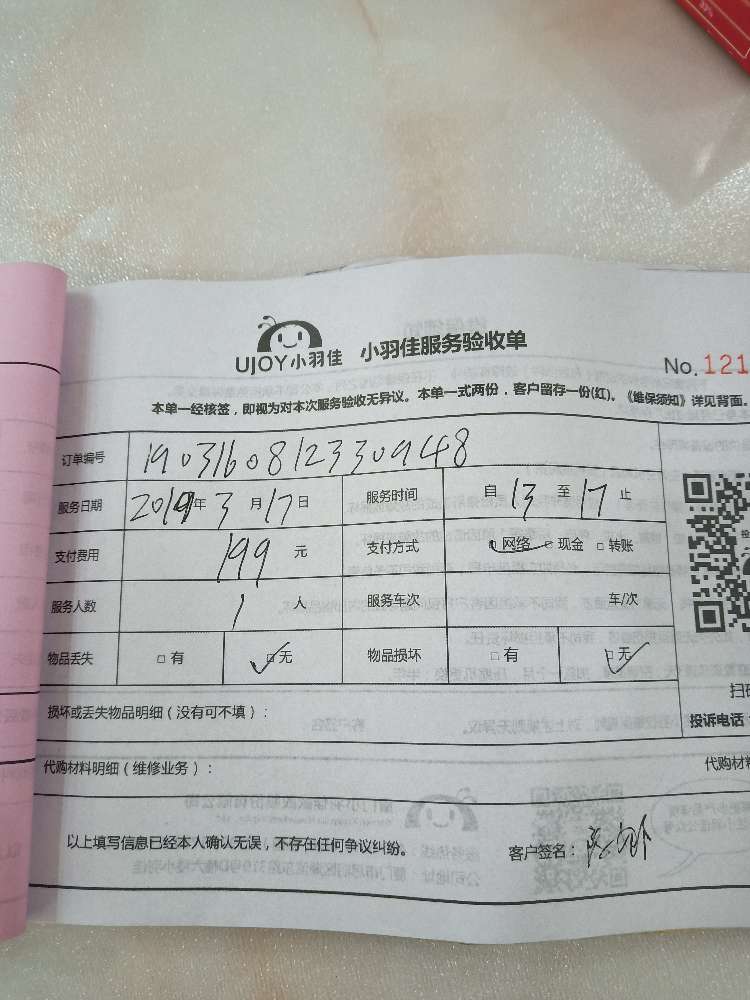 UJOY小羽佳 小羽佳服务验收单
No.121
本单一经核签，即视为对本次服务验收无异议。本单一式两份，客户留存一份(红)。《维保须知》详见背面。
订单编号 19031608123309448
服务日期 2019年3月17日 服务时间 自13至17止
支付费用 199元 支付方式 网络 □现金 □转账
服务人数 1人 服务车次 车/次
物品丢失 □有 □无 物品损坏 □有 □无
扫码
损坏或丢失物品明细（没有可不填）：
投诉电话
代购材料明细（维修业务）：
代购材料
以上填写信息已经本人确认无误，不存在任何争议纠纷。 客户签名：